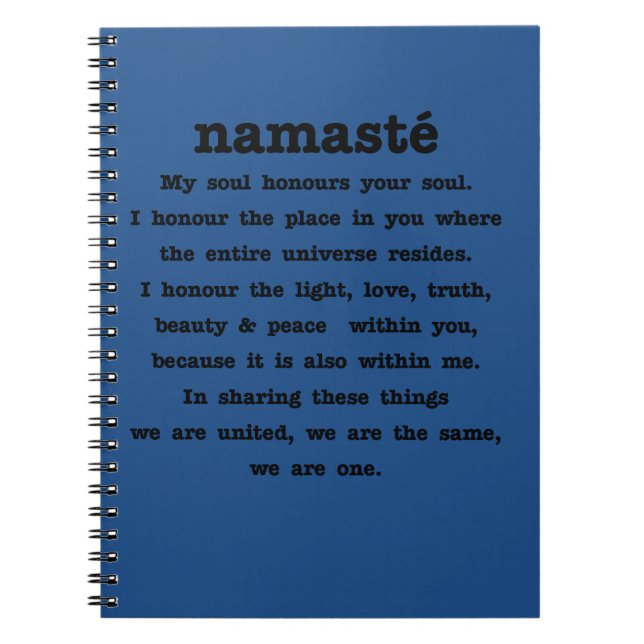 namasté
My soul honours your soul.
I honour the place in you where
the entire universe resides.
I honour the light, love, truth,
beauty & peace within you,
because it is also within me.
In sharing these things
we are united, we are the same,
we are one.